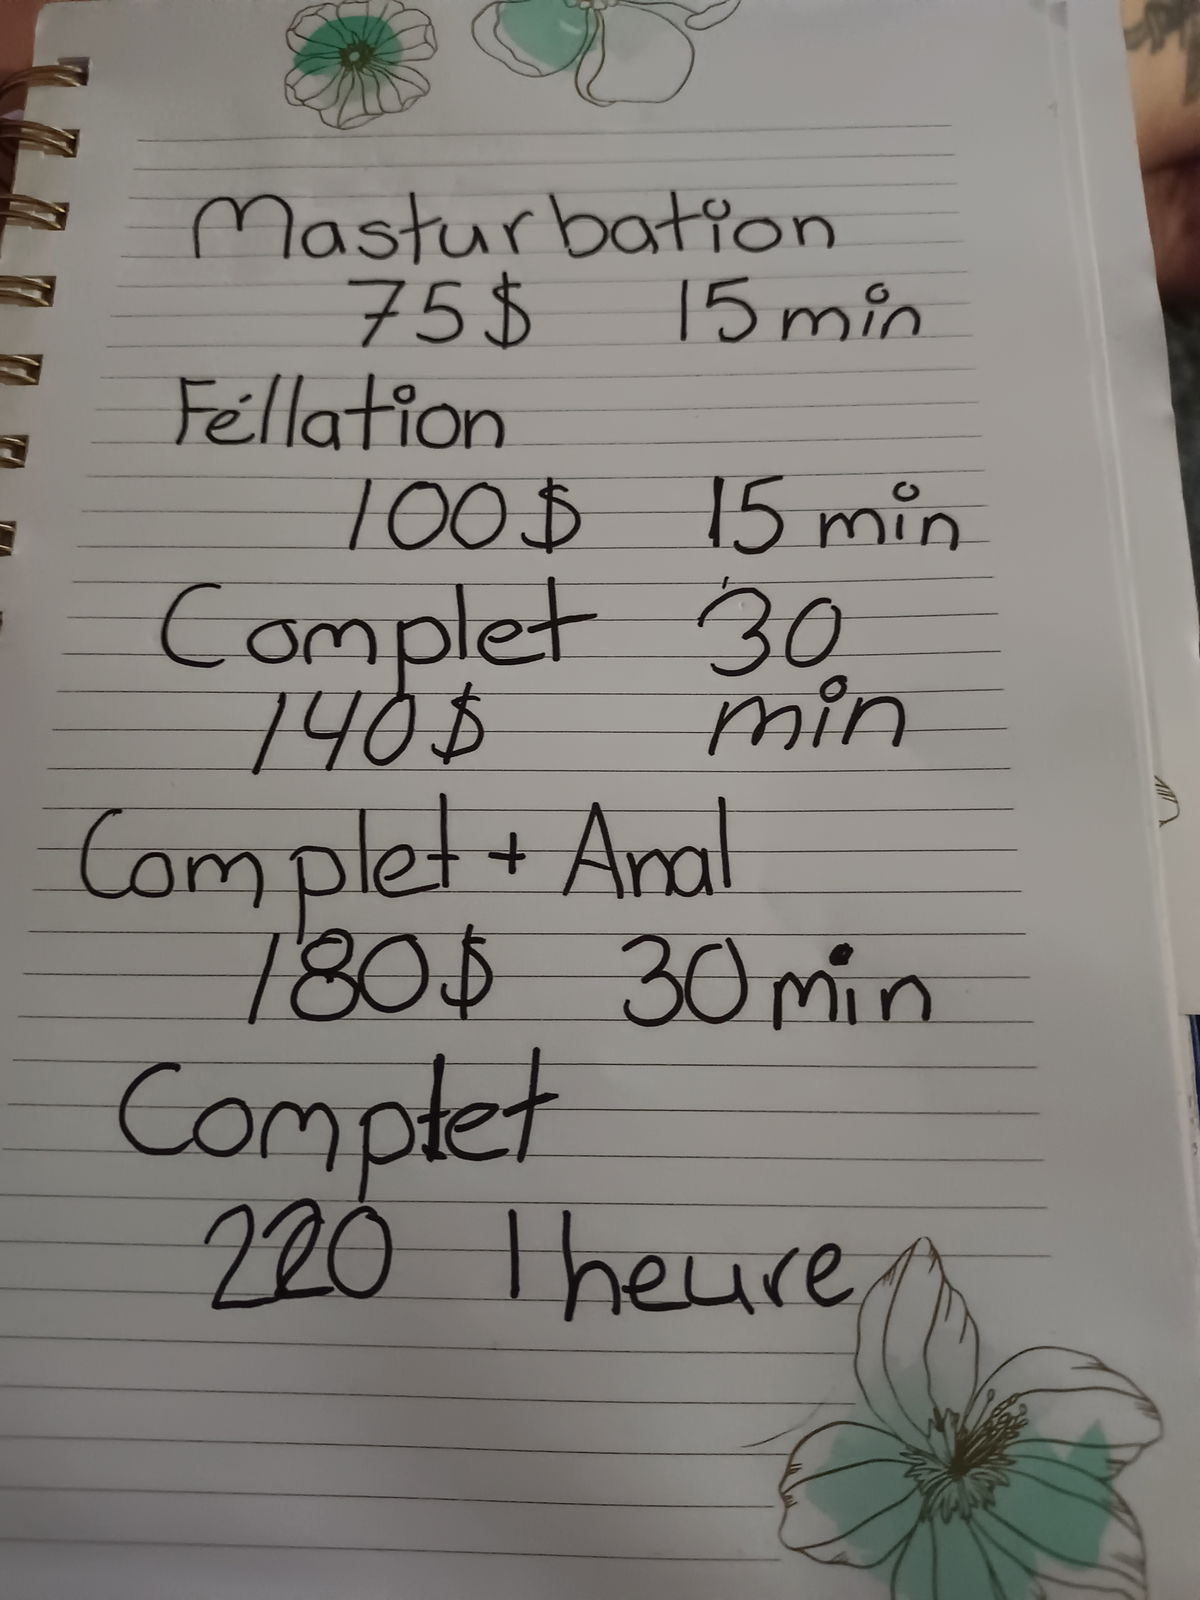 Masturbation
75$ 15 min
Féllation
100$ 15 min
Complet 30
140$ min
Complet + Anal
180$ 30 min
Complet
220 1 heure